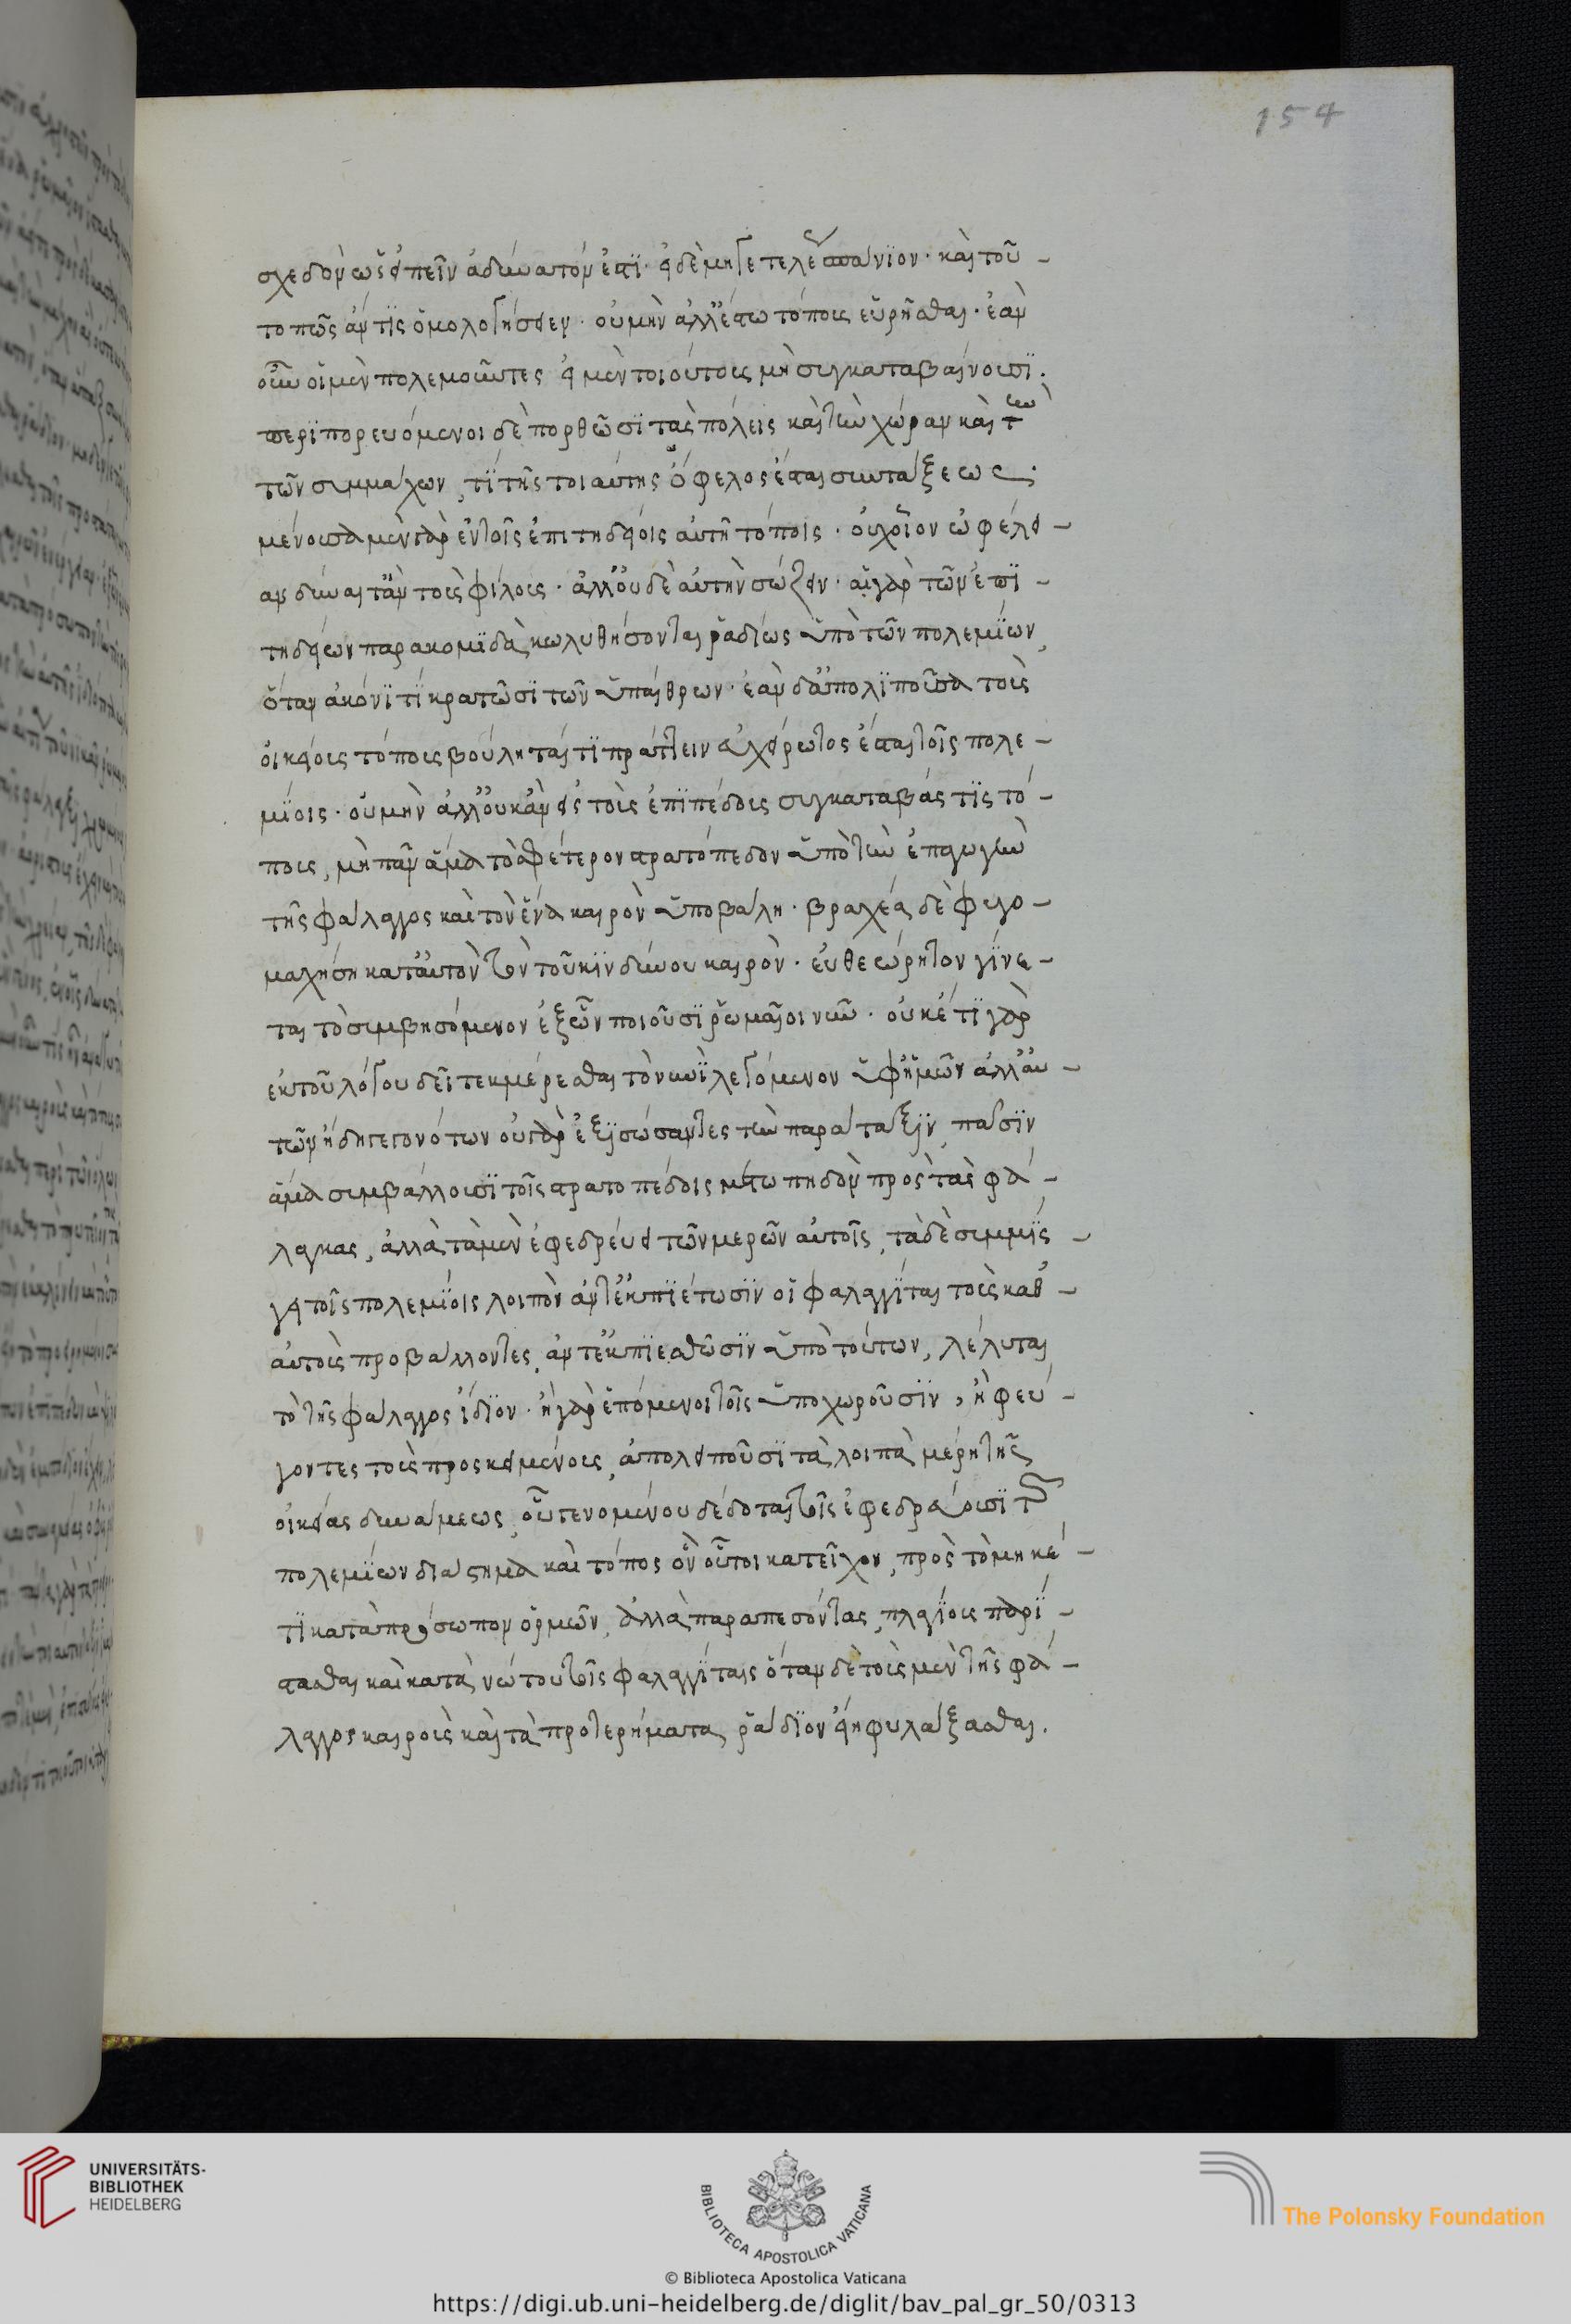 154
σχεδὸν ὡς εἰπεῖν ἀδύνατόν ἐστϊ· εἰ δὲ μή γε τελέως σπάνϊον· καὶ τοῦ -
το πῶς ἄν τϊς ὁμολογήσειεν· οὐ μὴν ἀλλ' ἔστω τόπους εὑρῆσθαι· ἐὰν
οὖν οἱ μὲν πολεμοῦντες εἰ μὲν τοιούτοις μὴ συγκαταβαίνουσϊ.
περϊπορευόμενοι δὲ πορθῶσϊ τὰς πόλεις καὶ τὴν χώραν καὶ τὴν
τῶν συμμάχων, τϊ τῆς τοιαύτης ὄφελος ἔσται συντάξεως;
μένουσα μὲν γὰρ ἐν τοῖς ἐπιτηδείοις αὐτῇ τόποις· οὐχ οἷον ὠφελεῖ -
αν δύναιτ' ἂν τοὺς φίλους· ἀλλ' οὐδὲ αὑτὴν σώζειν· αἱ γὰρ τῶν ἐπϊ -
τηδείων παρακομϊδαὶ κωλυθήσονται ῥαδίως ὑπὸ τῶν πολεμϊων,
ὅταν ἀκονϊτϊ κρατῶσϊ τῶν ὑπαίθρων· ἐὰν δ' ἀπολϊποῦσα τοὺς
οἰκείους τόπους βούληταί τϊ πράττειν εὐχείρωτος ἔσται τοῖς πολε -
μϊοις· οὐ μὴν ἀλλ' οὐκ ἂν εἰς τοὺς ἐπϊπέδους συγκαταβάς τϊς τό -
πους, μὴ πᾶν ἅμα τὸ σφέτερον στρατόπεδον ὑπὸ τὴν ἐπαγωγὴν
τῆς φάλαγγος καὶ τὸν ἕνα καιρὸν ὑποβάλῃ· βραχέα δὲ φυγο -
μαχήσῃ κατ' αὐτὸν τὸν τοῦ κϊνδύνου καιρὸν· εὐθεώρητον γϊνε -
ται τὸ συμβησόμενον ἐξ ὧν ποιοῦσϊ ῥωμαῖοι νῦν· οὐκέτϊ γὰρ
ἐκ τοῦ λόγου δεῖ τεκμέρεσθαι τὸ νυνϊ λεγόμενον ὑφ' ἡμῶν ἀλλ' ἐκ -
τῶν ἤδη γεγονότων οὐ γὰρ ἐξϊσώσαντες τὴν παράταξϊν, πᾶσϊν
ἅμα συμβάλλουσϊ τοῖς στρατοπέδοις μετωπηδὸν πρὸς τὰς φά -
λαγκας, ἀλλὰ τὰ μὲν ἐφεδρεύει τῶν μερῶν αὐτοῖς, τὰ δὲ συμμϊς -
γει τοῖς πολεμϊοις λοιπὸν ἄν τ' ἐκπϊέσωσϊν οἱ φαλαγγϊται τοὺς καθ' -
αὑτοὺς προβάλλοντες, ἄν τ' ἐκπϊεσθῶσϊν ὑπὸ τούτων, λέλυται
τὸ τῆς φάλαγγος ἴδϊον· ἢ γὰρ ἑπόμενοι τοῖς ὑποχωροῦσϊν, ἢ φεύ -
γοντες τοὺς προσκειμένους, ἀπολείπουσϊ τὰ λοιπὰ μέρη τῆς
οἰκείας δυνάμεως, οὗ γενομένου δέδοται τοῖς ἐφεδρεύουσϊ τῶν
πολεμϊων διάστημα καὶ τόπος ὃν οὗτοι κατεῖχον, πρὸς τὸ μηκέ -
τϊ κατὰ πρόσωπον ὁρμᾶν, ἀλλὰ παραπεσόντας, πλαγϊους παρϊ -
στασθαι καὶ κατὰ νώτου τοῖς φαλαγγϊταις ὅταν δὲ τοὺς μὲν τῆς φά -
λαγγος καιροὺς καὶ τὰ προτερήματα, ῥάδϊον εἴη φυλάξασθαι.
UNIVERSITÄTS-
BIBLIOTHEK
HEIDELBERG
BIBLIOTECA APOSTOLICA VATICANA
The Polonsky Foundation
© Biblioteca Apostolica Vaticana
https://digi.ub.uni-heidelberg.de/diglit/bav_pal_gr_50/0313